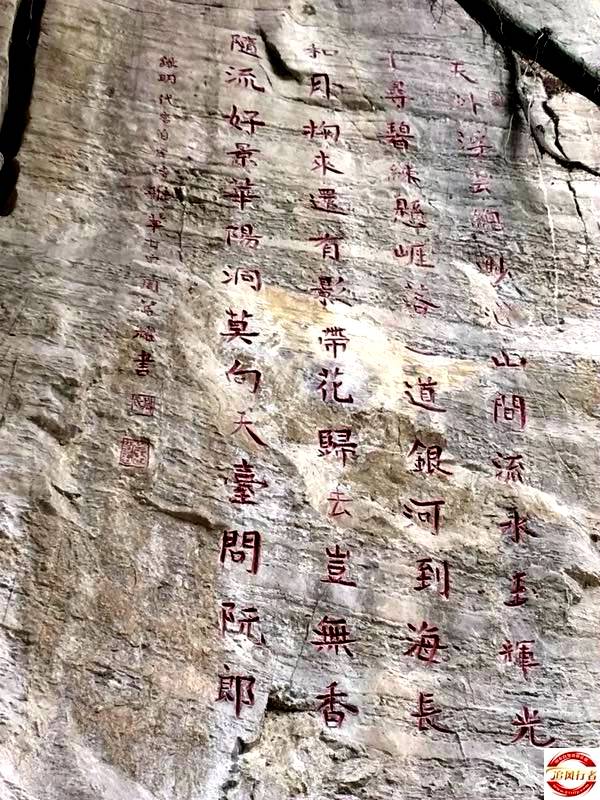 天外浮云妙山間流水玉輝光
千尋碧練懸崕落一道銀河到海長
和月掬來還有影帶花歸去豈無香
隨流好景華陽洞莫向天臺問阮郎
錄明代詩書
行者